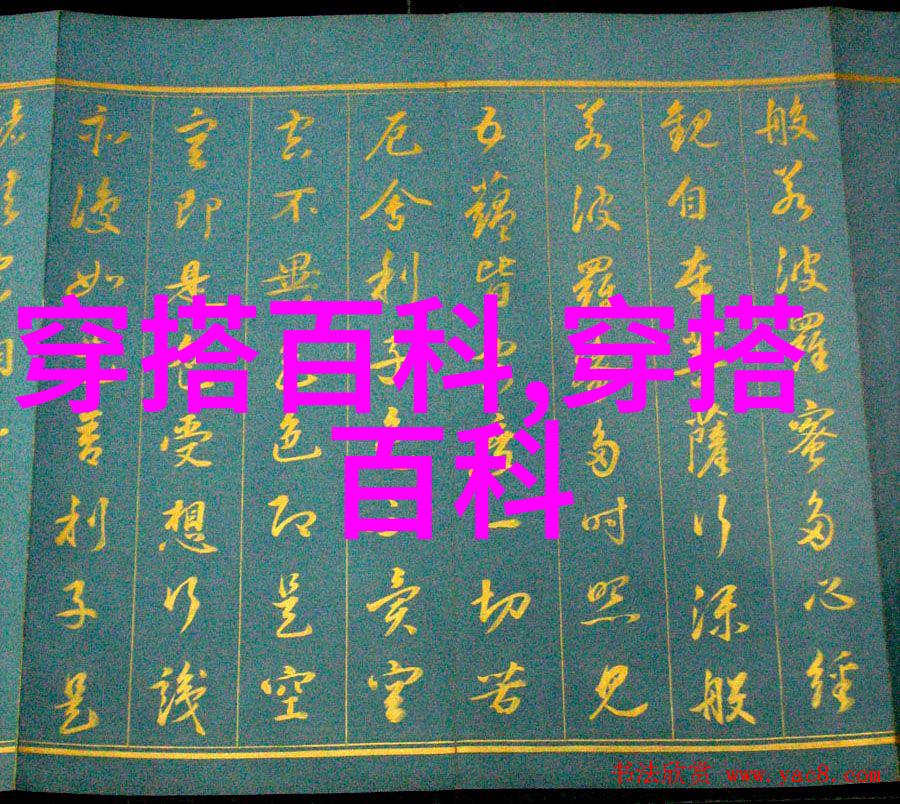 般若波羅蜜多心經
觀自在菩薩行深般
若波羅蜜多时照見
五蘊皆空度一切苦
厄舍利子色不異空
空不異色色即是空
空即是色受想行識
亦復如是舍利子是
穿搭百科,穿搭
百科
书法欣赏 www.yac8.com